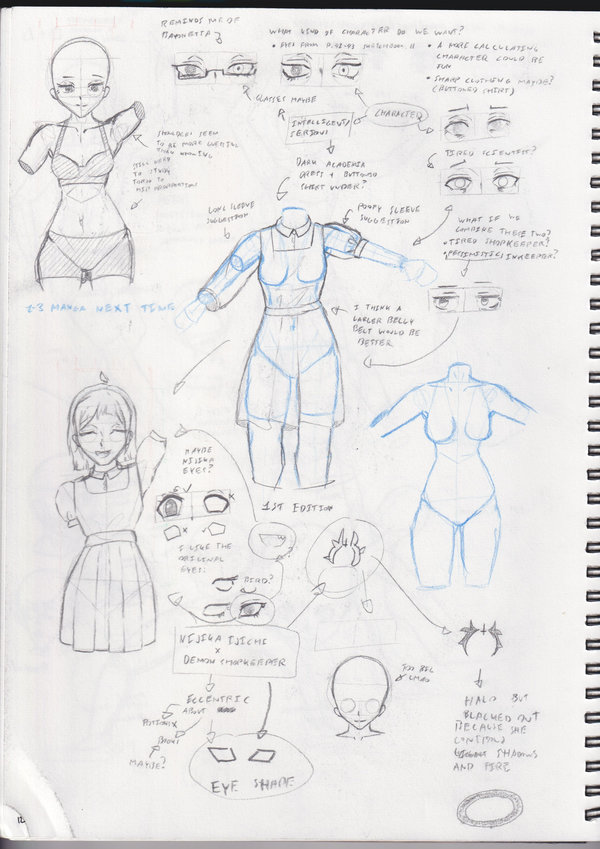 REMINDS ME OF
BAYONETTA
WHAT KIND OF CHARACTER DO WE WANT?
• EYES FROM P.
SKETCHBOOK 11
• A MORE CALCULATING
CHARACTER COULD BE
FUN
• SHARP CLOTHING MAYBE?
(BUTTONED SHIRT)
GLASSES MAYBE
INTELLIGENT/
SERIOUS
CHARACTER
SHOULDERS SEEM
TO BE MORE
THAN
STILL NEED
TO STUDY
TORSO TO
HIPS PROPORTIONS
TIRED SCIENTIST?
DARK ACADEMIA
DRESS + BUTTONED
SHIRT UNDER?
LONG SLEEVE
SUGGESTION
POOFY SLEEVE
SUGGESTION
WHAT IF WE
COMBINE THESE TWO?
• TIRED SHOPKEEPER?
• PESSIMISTIC INNKEEPER?
MANGA NEXT TIME
I THINK A
LARGER BELLY
BELT WOULD BE
BETTER
MAYBE
NIJIKA
EYES?
1ST EDITION
I LIKE THE
ORIGINAL
EYES.
?
BIRD?
NIJIKA IJICHI
X
DEMON SHOPKEEPER
ECCENTRIC
ABOUT
POTIONS X
BOOKS
MAYBE?
EYE SHAPE
TOO BIG
LMAO
HALO BUT
BLACKED OUT
BECAUSE SHE
CONTROLS
SHADOWS
AND FIRE?
12